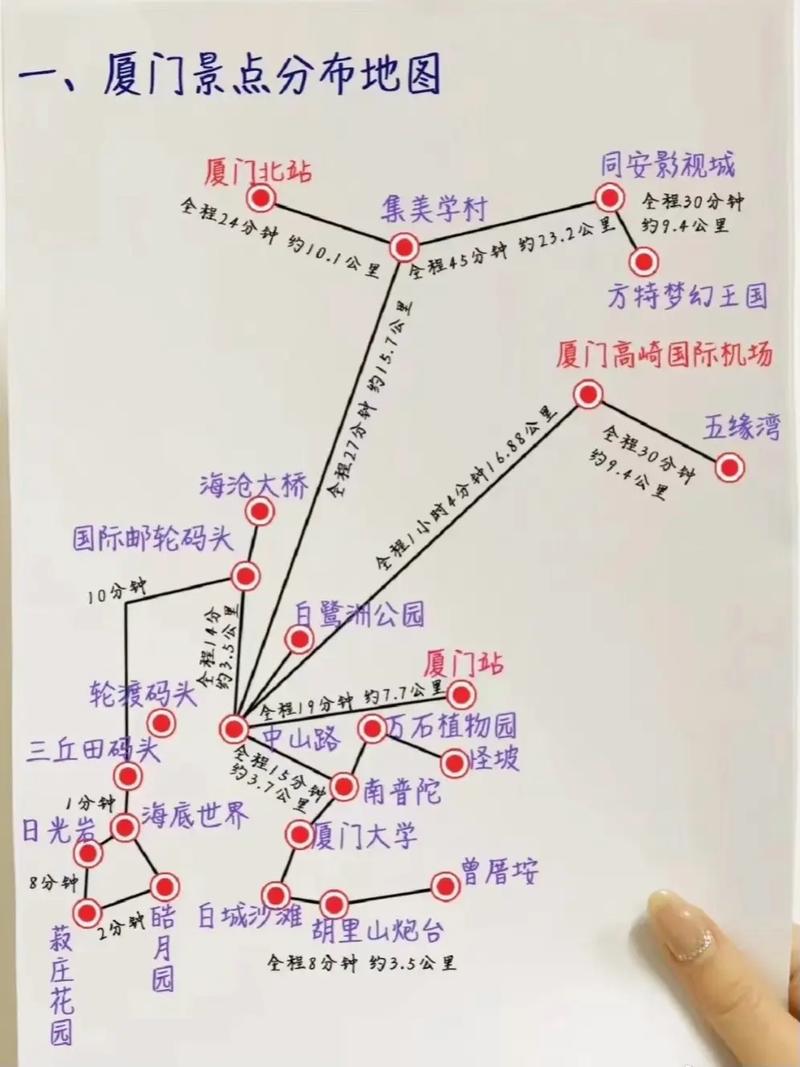 一、厦门景点分布地图
厦门北站
同安影视城
全程24分钟 约10.1公里
集美学村
全程45分钟 约23.2公里
全程30分钟
约9.4公里
方特梦幻王国
全程27分钟 约15.7公里
厦门高崎国际机场
五缘湾
全程30分钟
约9.4公里
全程1小时4分钟16.88公里
海沧大桥
国际邮轮码头
10分钟
全程14分
约3.5公里
白鹭洲公园
厦门站
全程19分钟 约7.7公里
轮渡码头
中山路
万石植物园
三丘田码头
全程15分钟
约3.7公里
怪坡
南普陀
1分钟
海底世界
日光岩
厦门大学
8分钟
曾厝垵
2分钟
皓月园
白城沙滩
胡里山炮台
菽庄花园
全程8分钟 约3.5公里